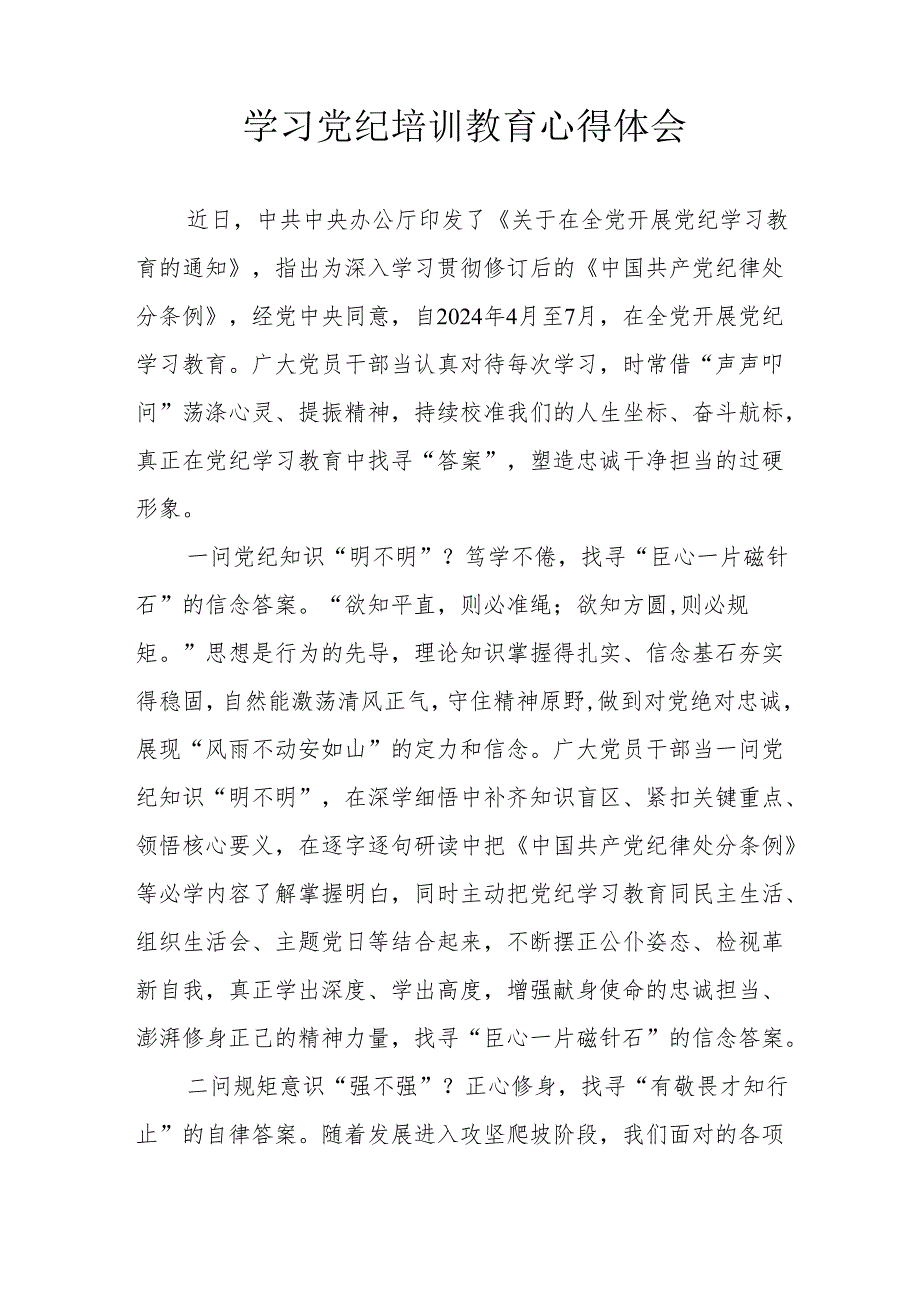 学习党纪培训教育心得体会
近日，中共中央办公厅印发了《关于在全党开展党纪学习教
育的通知》，指出为深入学习贯彻修订后的《中国共产党纪律处
分条例》，经党中央同意，自2024年4月至7月，在全党开展党纪
学习教育。广大党员干部当认真对待每次学习，时常借“声声叩
问”荡涤心灵、提振精神，持续校准我们的人生坐标、奋斗航标，
真正在党纪学习教育中找寻“答案”，塑造忠诚干净担当的过硬
形象。
一问党纪知识“明不明”？笃学不倦，找寻“臣心一片磁针
石”的信念答案。“欲知平直，则必准绳；欲知方圆,则必规
矩。”思想是行为的先导，理论知识掌握得扎实、信念基石夯实
得稳固，自然能激荡清风正气，守住精神原野,做到对党绝对忠诚，
展现“风雨不动安如山”的定力和信念。广大党员干部当一问党
纪知识“明不明”，在深学细悟中补齐知识盲区、紧扣关键重点、
领悟核心要义，在逐字逐句研读中把《中国共产党纪律处分条例》
等必学内容了解掌握明白，同时主动把党纪学习教育同民主生活、
组织生活会、主题党日等结合起来，不断摆正公仆姿态、检视革
新自我，真正学出深度、学出高度，增强献身使命的忠诚担当、
澎湃修身正己的精神力量，找寻“臣心一片磁针石”的信念答案。
二问规矩意识“强不强”？正心修身，找寻“有敬畏才知行
止”的自律答案。随着发展进入攻坚爬坡阶段，我们面对的各项